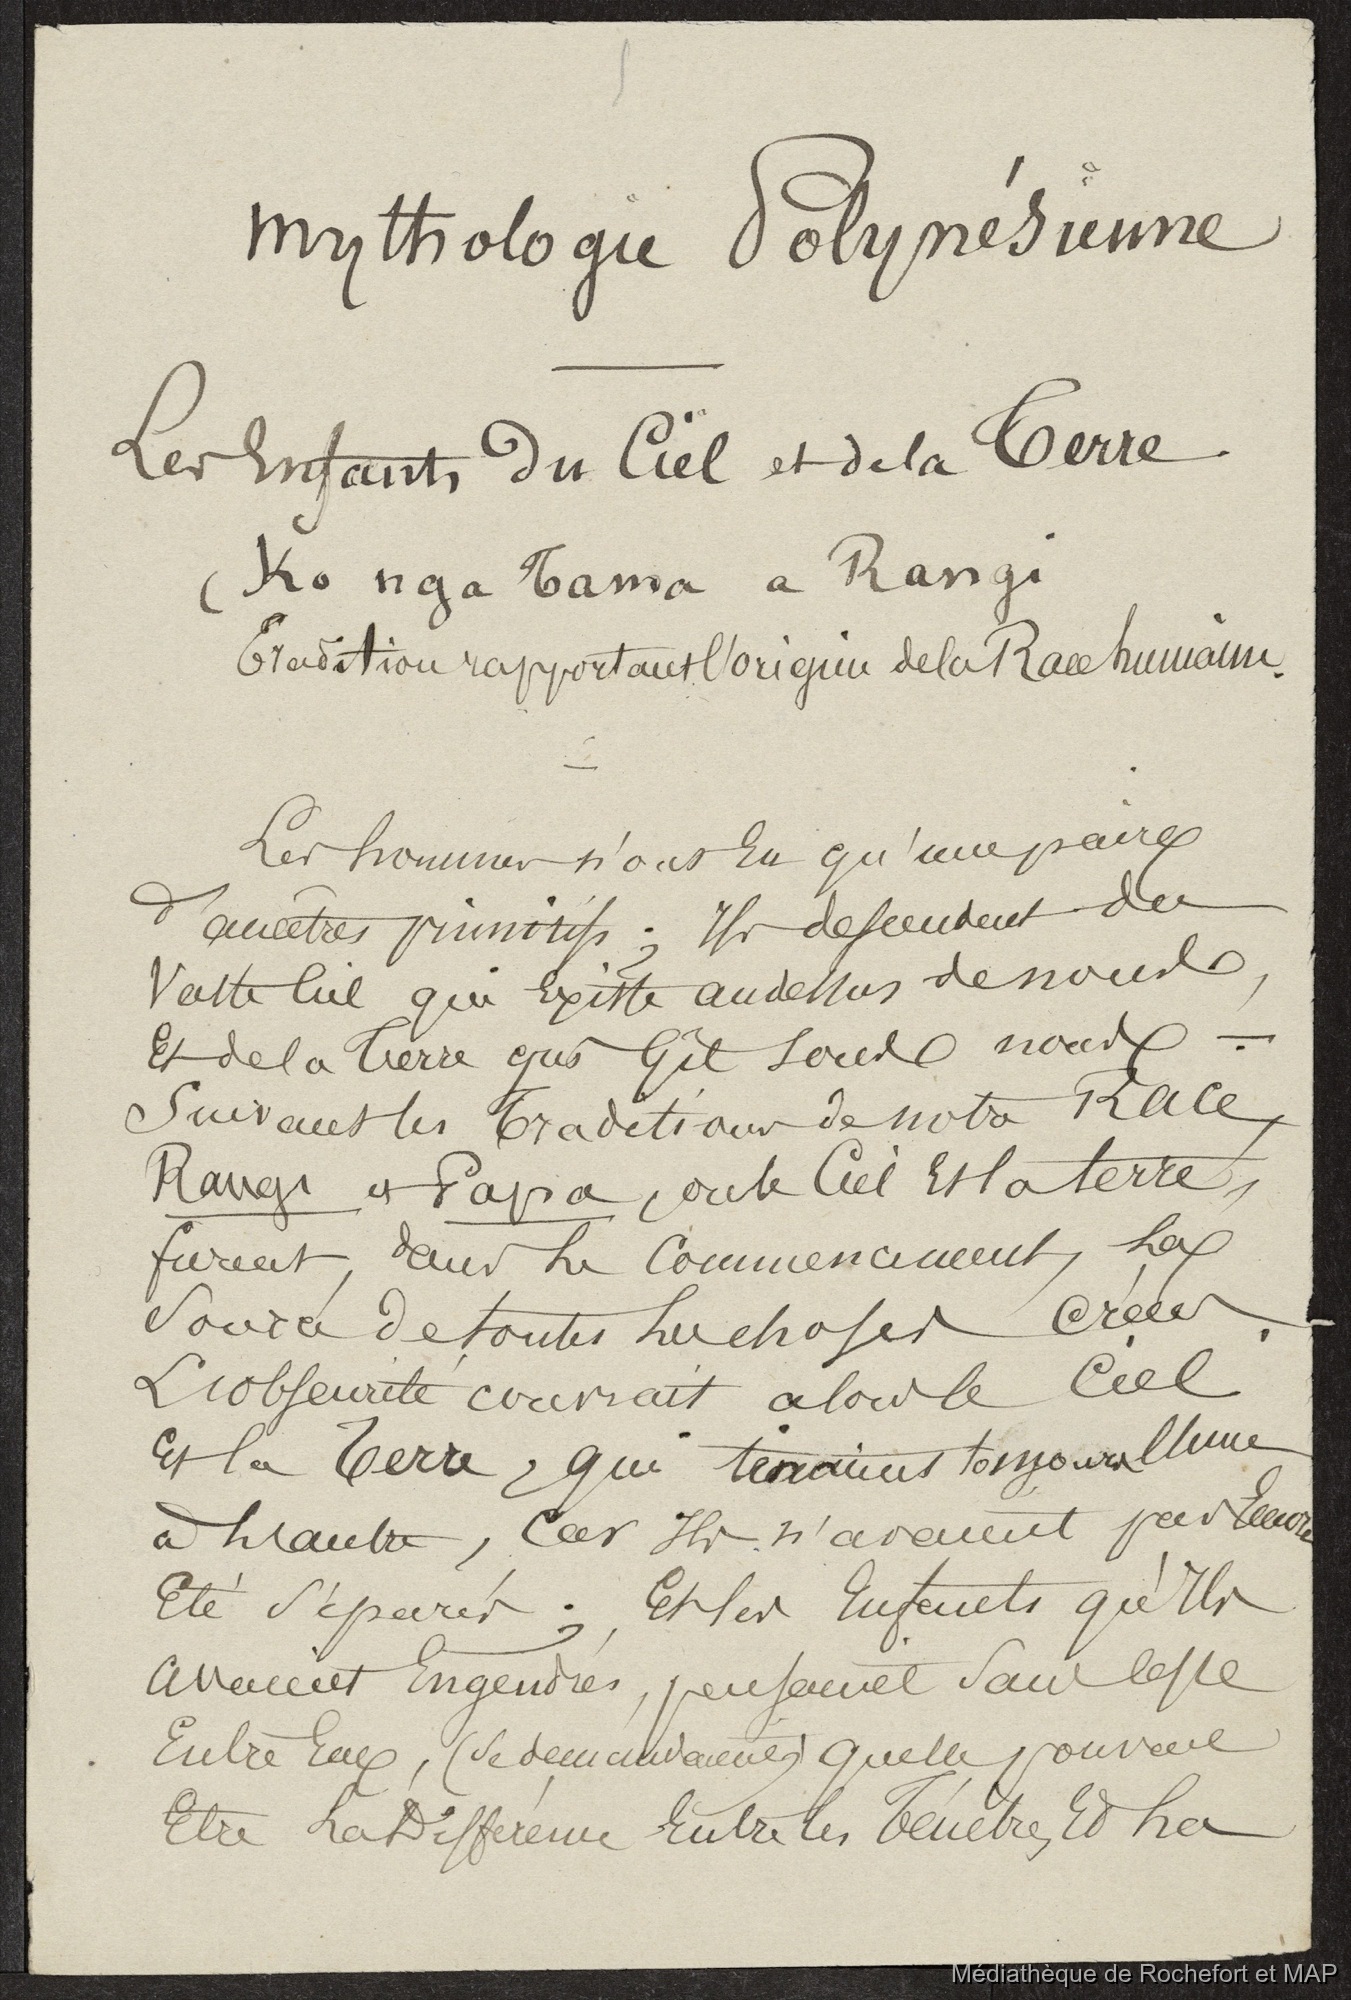 Mythologie Polynésienne
Les Enfants Du Ciel et de la Terre.
(Ko nga Tama a Rangi
Tradition rapportant l'origine de la Race humaine.
Les hommes n'ont Eu qu'une paire
d'ancêtres primitifs; Ils descendent du
Vaste Ciel qui Existe au dessus de nous,
Et de la Terre qui Gît Sous nous -
Suivant les Traditions de notre Race,
Rangi et Papa, ou le Ciel Et la terre,
furent, dans le Commencement, la
Source de toutes les choses créées.
L'obscurité couvrait alors le Ciel
Et la Terre, qui tenaient toujours l'une
à l'autre, Car Ils n'avaient pas Encore
Eté séparés; Et les Enfants qu'Ils
avaient Engendrés, pensaient sans cesse
Entre Eux, (se demandaient) quelle pouvait
Etre la Différence Entre les Ténèbres Et la
Médiathèque de Rochefort et MAP